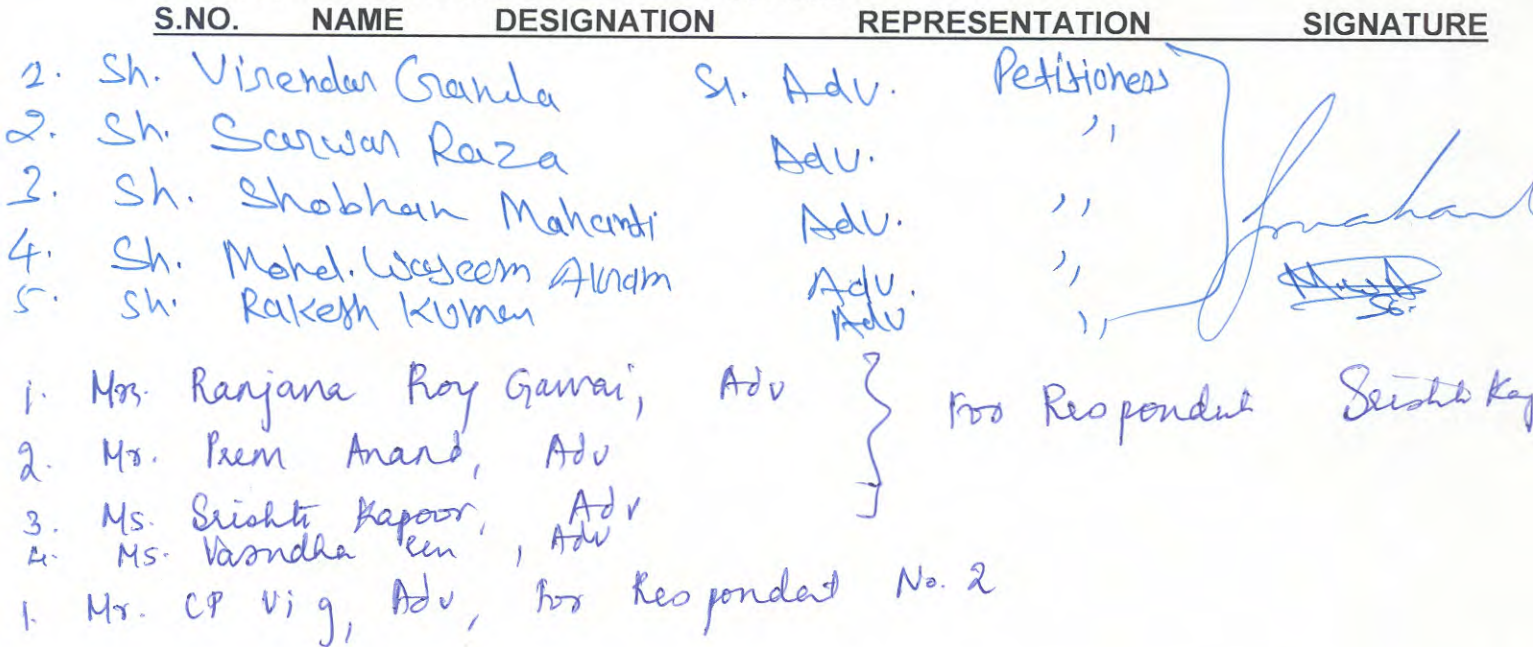 S.NO. NAME DESIGNATION REPRESENTATION SIGNATURE
1. Sh. Virender Ganda Sr. Adv. Petitioners
2. Sh. Sarwar Raza Adv. ,,
3. Sh. Shobhan Mahanti Adv. ,,
4. Sh. Mohd. Waseem Akram Adv. ,,
5. Sh. Rakesh Kumar Adv ,,
1. Mrs. Ranjana Roy Gawai, Adv For Respondent Srishti
2. Mr. Prem Anand, Adv
3. Ms. Srishti Kapoor, Adv
4. Ms. Vasudha Sen, Adv
1. Mr. CP Vig, Adv, for Respondent No. 2